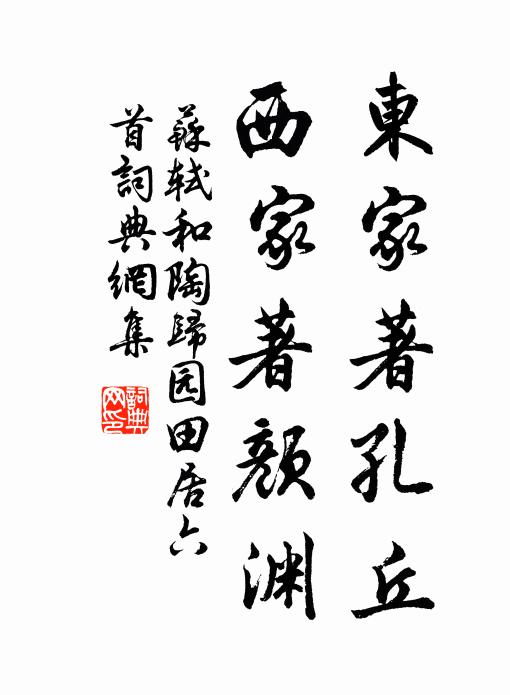 東家著孔丘
西家著顏渊
蘇軾和陶歸园田居六
首詞典網集
詞典
网印